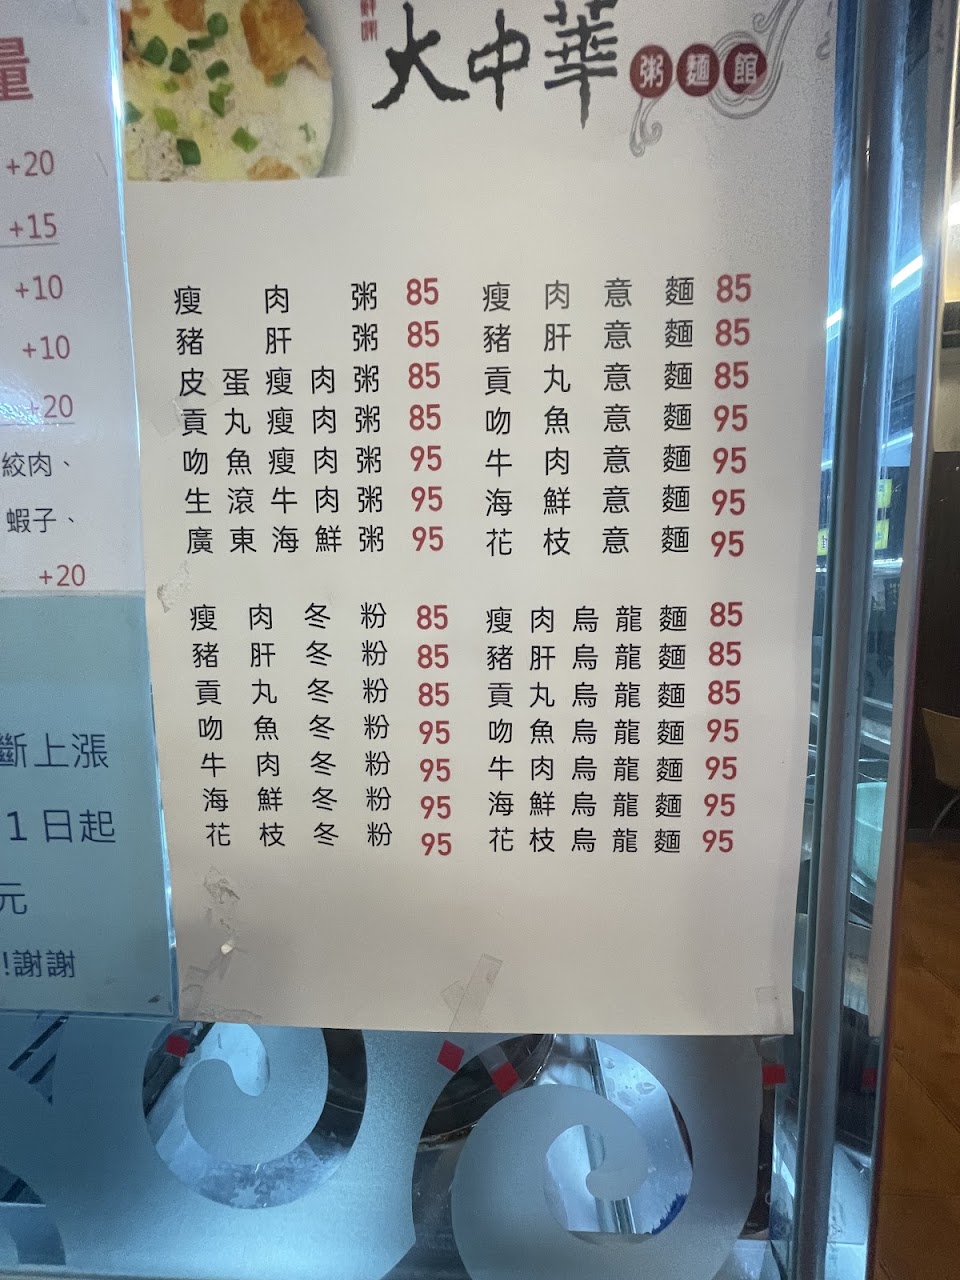 大中華 粥麵館
瘦肉粥 85
豬肝粥 85
皮蛋瘦肉粥 85
貢丸瘦肉粥 85
吻魚瘦肉粥 95
生滾牛肉粥 95
廣東海鮮粥 95
瘦肉意麵 85
豬肝意麵 85
貢丸意麵 85
吻魚意麵 95
牛肉意麵 95
海鮮意麵 95
花枝意麵 95
瘦肉冬粉 85
豬肝冬粉 85
貢丸冬粉 85
吻魚冬粉 95
牛肉冬粉 95
海鮮冬粉 95
花枝冬粉 95
瘦肉烏龍麵 85
豬肝烏龍麵 85
貢丸烏龍麵 85
吻魚烏龍麵 95
牛肉烏龍麵 95
海鮮烏龍麵 95
花枝烏龍麵 95
量
+20
+15
+10
+10
+20
絞肉、
蝦子、
+20
斷上漲
1日起
元
!謝謝